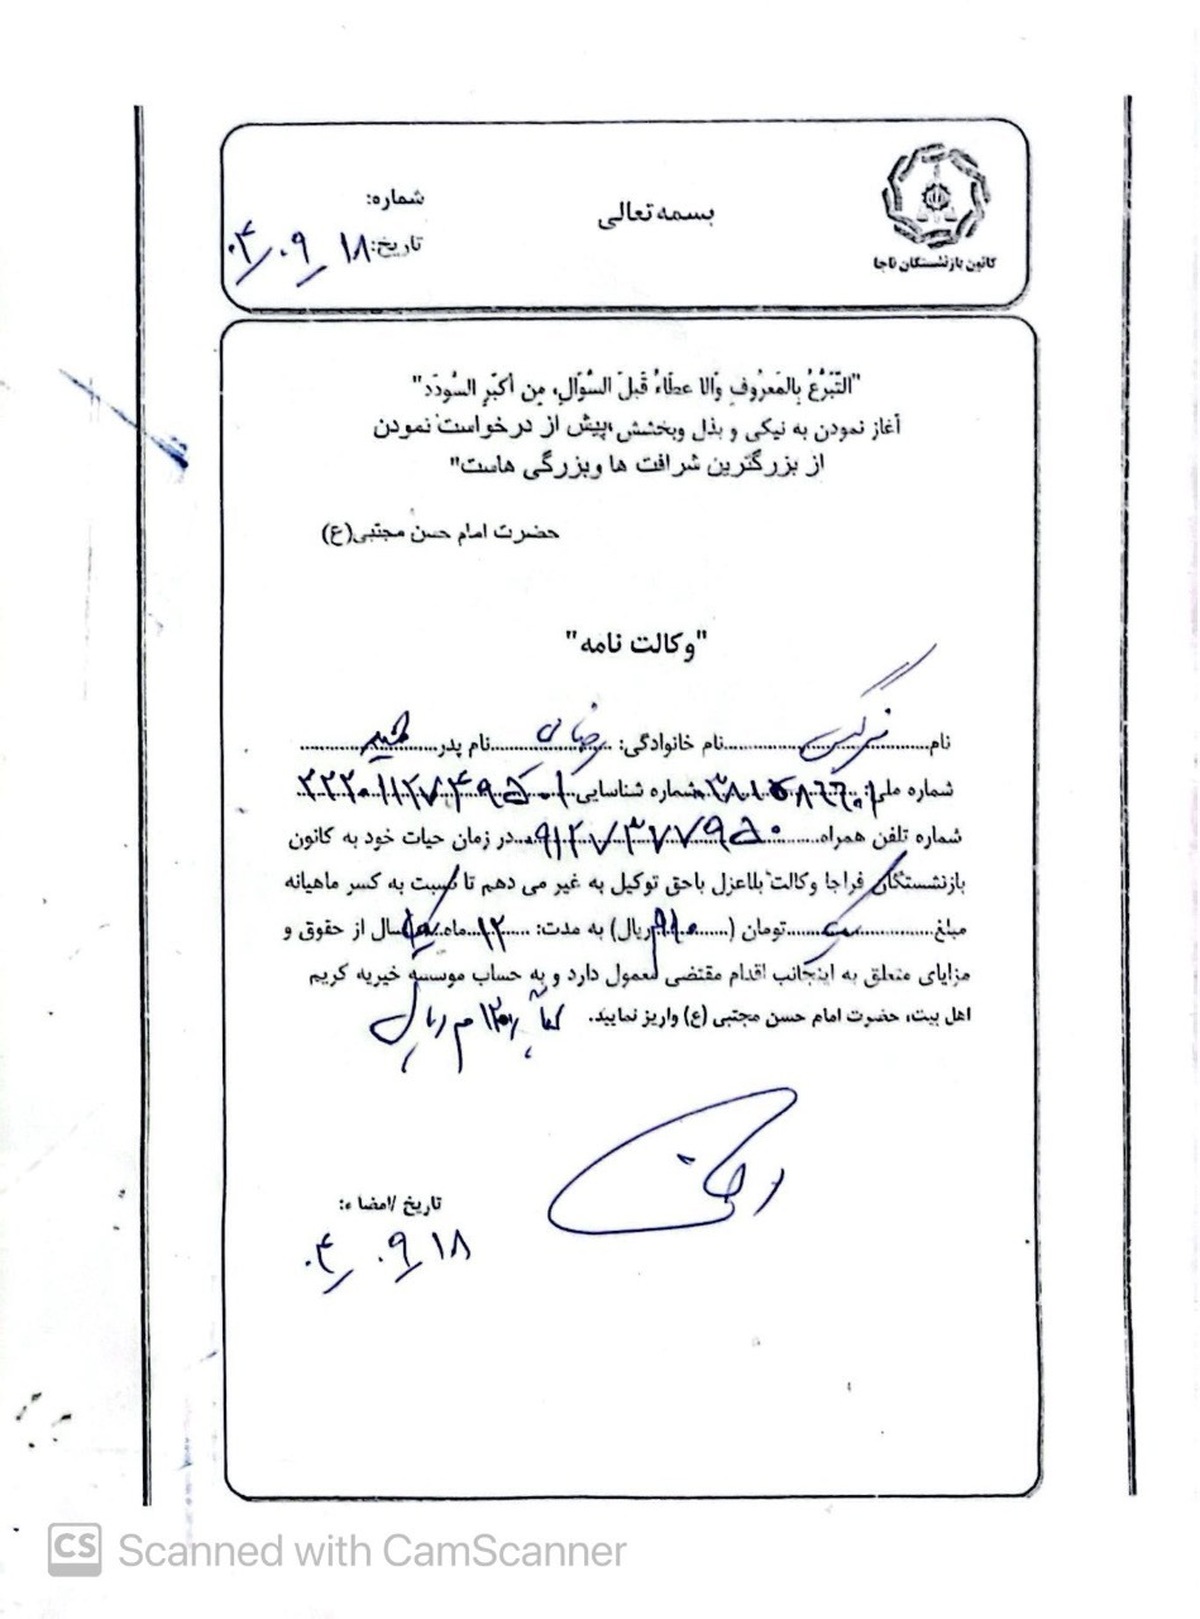 بسمه تعالی
شماره:
تاریخ: ۰۴/۰۹/۱۸
کانون بازنشستگان ناجا
"التَّبَرُّعُ بِالمَعرُوفِ وَالا عطَاءُ قَبلَ السُّوَالِ، مِن أکبَرِ السُّودَد"
آغاز نمودن به نیکی و بذل وبخشش ،پیش از درخواست نمودن
از بزرگترین شرافت ها وبزرگی هاست"
حضرت امام حسن مجتبی(ع)
"وکالت نامه"
نام نرگس نام خانوادگی: رضایی نام پدر
شماره ملی: شماره شناسایی
شماره تلفن همراه ۰۹۱۲۷۳۷۷۹۵۰ در زمان حیات خود به کانون
بازنشستگان فراجا وکالت بلاعزل باحق توکیل به غیر می دهم تا نسبت به کسر ماهیانه
مبلغ تومان ( ریال) به مدت: ۱۲ ماه سال از حقوق و
مزایای متعلق به اینجانب اقدام مقتضی معمول دارد و به حساب موسسه خیریه کریم
اهل بیت، حضرت امام حسن مجتبی (ع) واریز نمایید. ریال
تاریخ /امضاء:
۰۴/۰۹/۱۸
CS Scanned with CamScanner